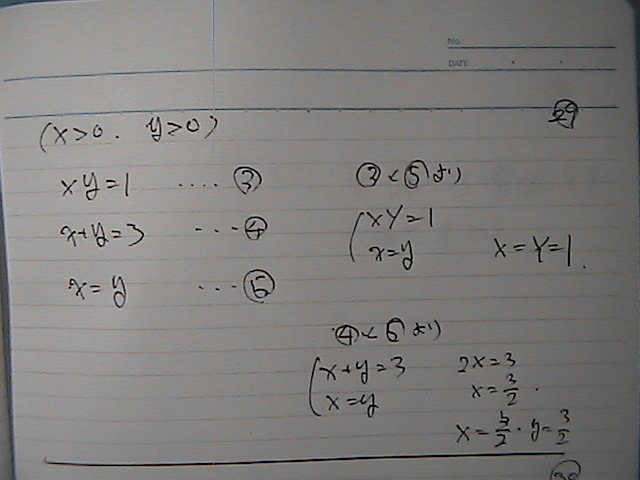 No.
DATE
(x>0. y>0)
㉙
xy=1 ····③
x+y=3 ···④
x=y ···⑤
③と⑤より
xy=1
x=y
x=y=1.
④と⑤より
x+y=3
x=y
2x=3
x=3/2.
x=3/2. y=3/2
㉚